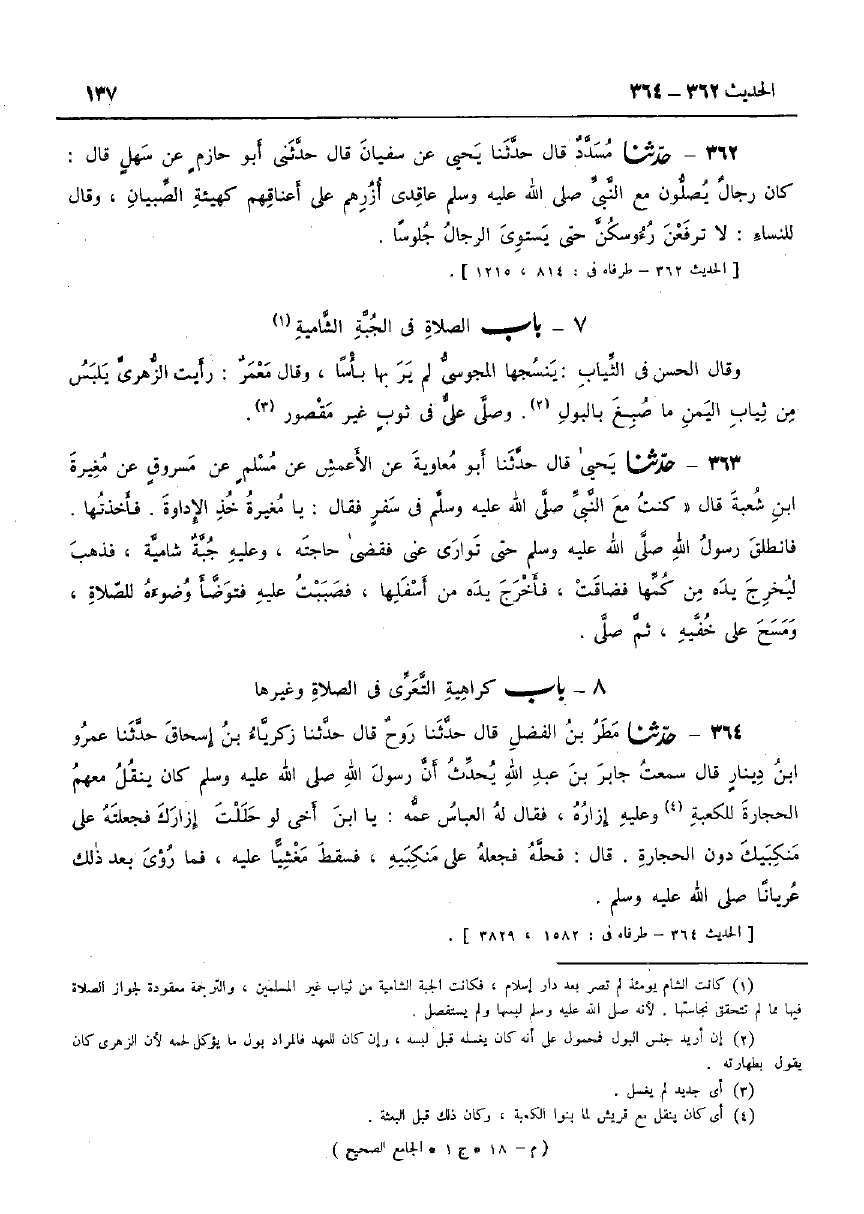 الحديث ٣٦٢ – ٣٦٤
١٣٧
٣٦٢ – حدّثنا مُسَدَّدٌ قال حدَّثَنا يَحيى عن سفيانَ قال حدَّثَنى أبو حازمٍ عن سَهلٍ قال :
كان رجالٌ يُصلُّون مع النَّبيِّ صلى الله عليه وسلم عاقِدى أُزُرِهم على أعناقِهم كهيئةِ الصِّبيان ، وقال
للنساءِ : لا ترفَعْنَ رُءوسكُنَّ حتى يَستوِىَ الرجالُ جُلوسًا .
[ الحديث ٣٦٢ – طرفاه فى : ٨١٤ ، ١٢١٥ ] .
٧ – باب الصلاةِ فى الجُبَّةِ الشَّاميةِ (١)
وقال الحسن فى الثِّيابِ : يَنسُجها المجوسىُّ لم يَرَ بها بأْسًا ، وقال مَعْمَرٌ : رأَيت الزُّهرىَّ يَلبَسُ
مِن ثِيابِ اليَمنِ ما صُبِغَ بالبولِ (٢). وصلَّى علىٌّ فى ثوبٍ غير مَقْصور (٣).
٣٦٣ – حدّثنا يَحيىٰ قال حدَّثَنا أبو مُعاويةَ عن الأَعمشِ عن مُسْلمٍ عن مَسروقٍ عن مُغِيرةَ
ابنِ شُعبةَ قال « كنتُ معَ النَّبيِّ صلَّى الله عليه وسلَّم فى سَفرٍ فقال : يا مُغيرةُ خُذِ الإداوةَ . فأخذتُها .
فانطلقَ رسولُ اللهِ صلَّى الله عليه وسلم حتى تَوارَى عنى فقضىٰ حاجتَه ، وعليهِ جُبَّةٌ شاميَّة ، فذهبَ
ليُخرِجَ يدَه مِن كُمِّها فضاقَتْ ، فأَخْرَجَ يدَه من أَسْفَلِها ، فصَبَبْتُ عليهِ فتوَضَّأَ وُضوءَهُ للصّلاةِ ،
وَمَسَحَ على خُفَّيهِ ، ثمَّ صلَّى .
٨ – باب كراهِيةِ التَّعَرِّى فى الصلاةِ وغيرها
٣٦٤ – حدّثنا مَطَرُ بنُ الفضلِ قال حدَّثَنا رَوحٌ قال حدَّثنا زكريَّاءُ بنُ إسحاقَ حدَّثَنا عمرُو
ابنُ دِينارٍ قال سمعتُ جابرَ بنَ عبدِ اللهِ يُحدِّثُ أنَّ رسولَ اللهِ صلى الله عليه وسلم كان ينقُلُ معهمُ
الحجارةَ للكعبةِ (٤) وعليهِ إزارُهُ ، فقال لهُ العباسُ عمُّه : يا ابنَ أخى لو حَلَلْتَ إزارَكَ فجعلتَهُ على
مَنكِبَيكَ دون الحجارةِ . قال : فحلَّهُ فجعلهُ على مَنكِبَيهِ ، فسقطَ مَغْشِيًّا عليه ، فما رُؤىَ بعد ذٰلك
عُريانًا صلى الله عليه وسلم .
[ الحديث ٣٦٤ – طرفاه فى : ١٥٨٢ ، ٣٨٢٩ ] .
(١) كانت الشام يومئذ لم تصر بعد دار إسلام ، فكانت الجبة الشامية من ثياب غير المسلمين ، والترجمة معقودة لجواز الصلاة
فيها مما لم تتحقق نجاستها . لأنه صلى الله عليه وسلم لبسها ولم يستفصل .
(٢) إن أريد جنس البول فمحمول على أنه كان يغسله قبل لبسه ، وإن كان للعهد فالمراد بول ما يؤكل لحمه لأن الزهرى كان
يقول بطهارته .
(٣) أى جديد لم يغسل .
(٤) أى كان ينقل مع قريش لما بنوا الكعبة ، وكان ذلك قبل البعثة .
( م – ١٨ * ج ١ * الجامع الصحيح )